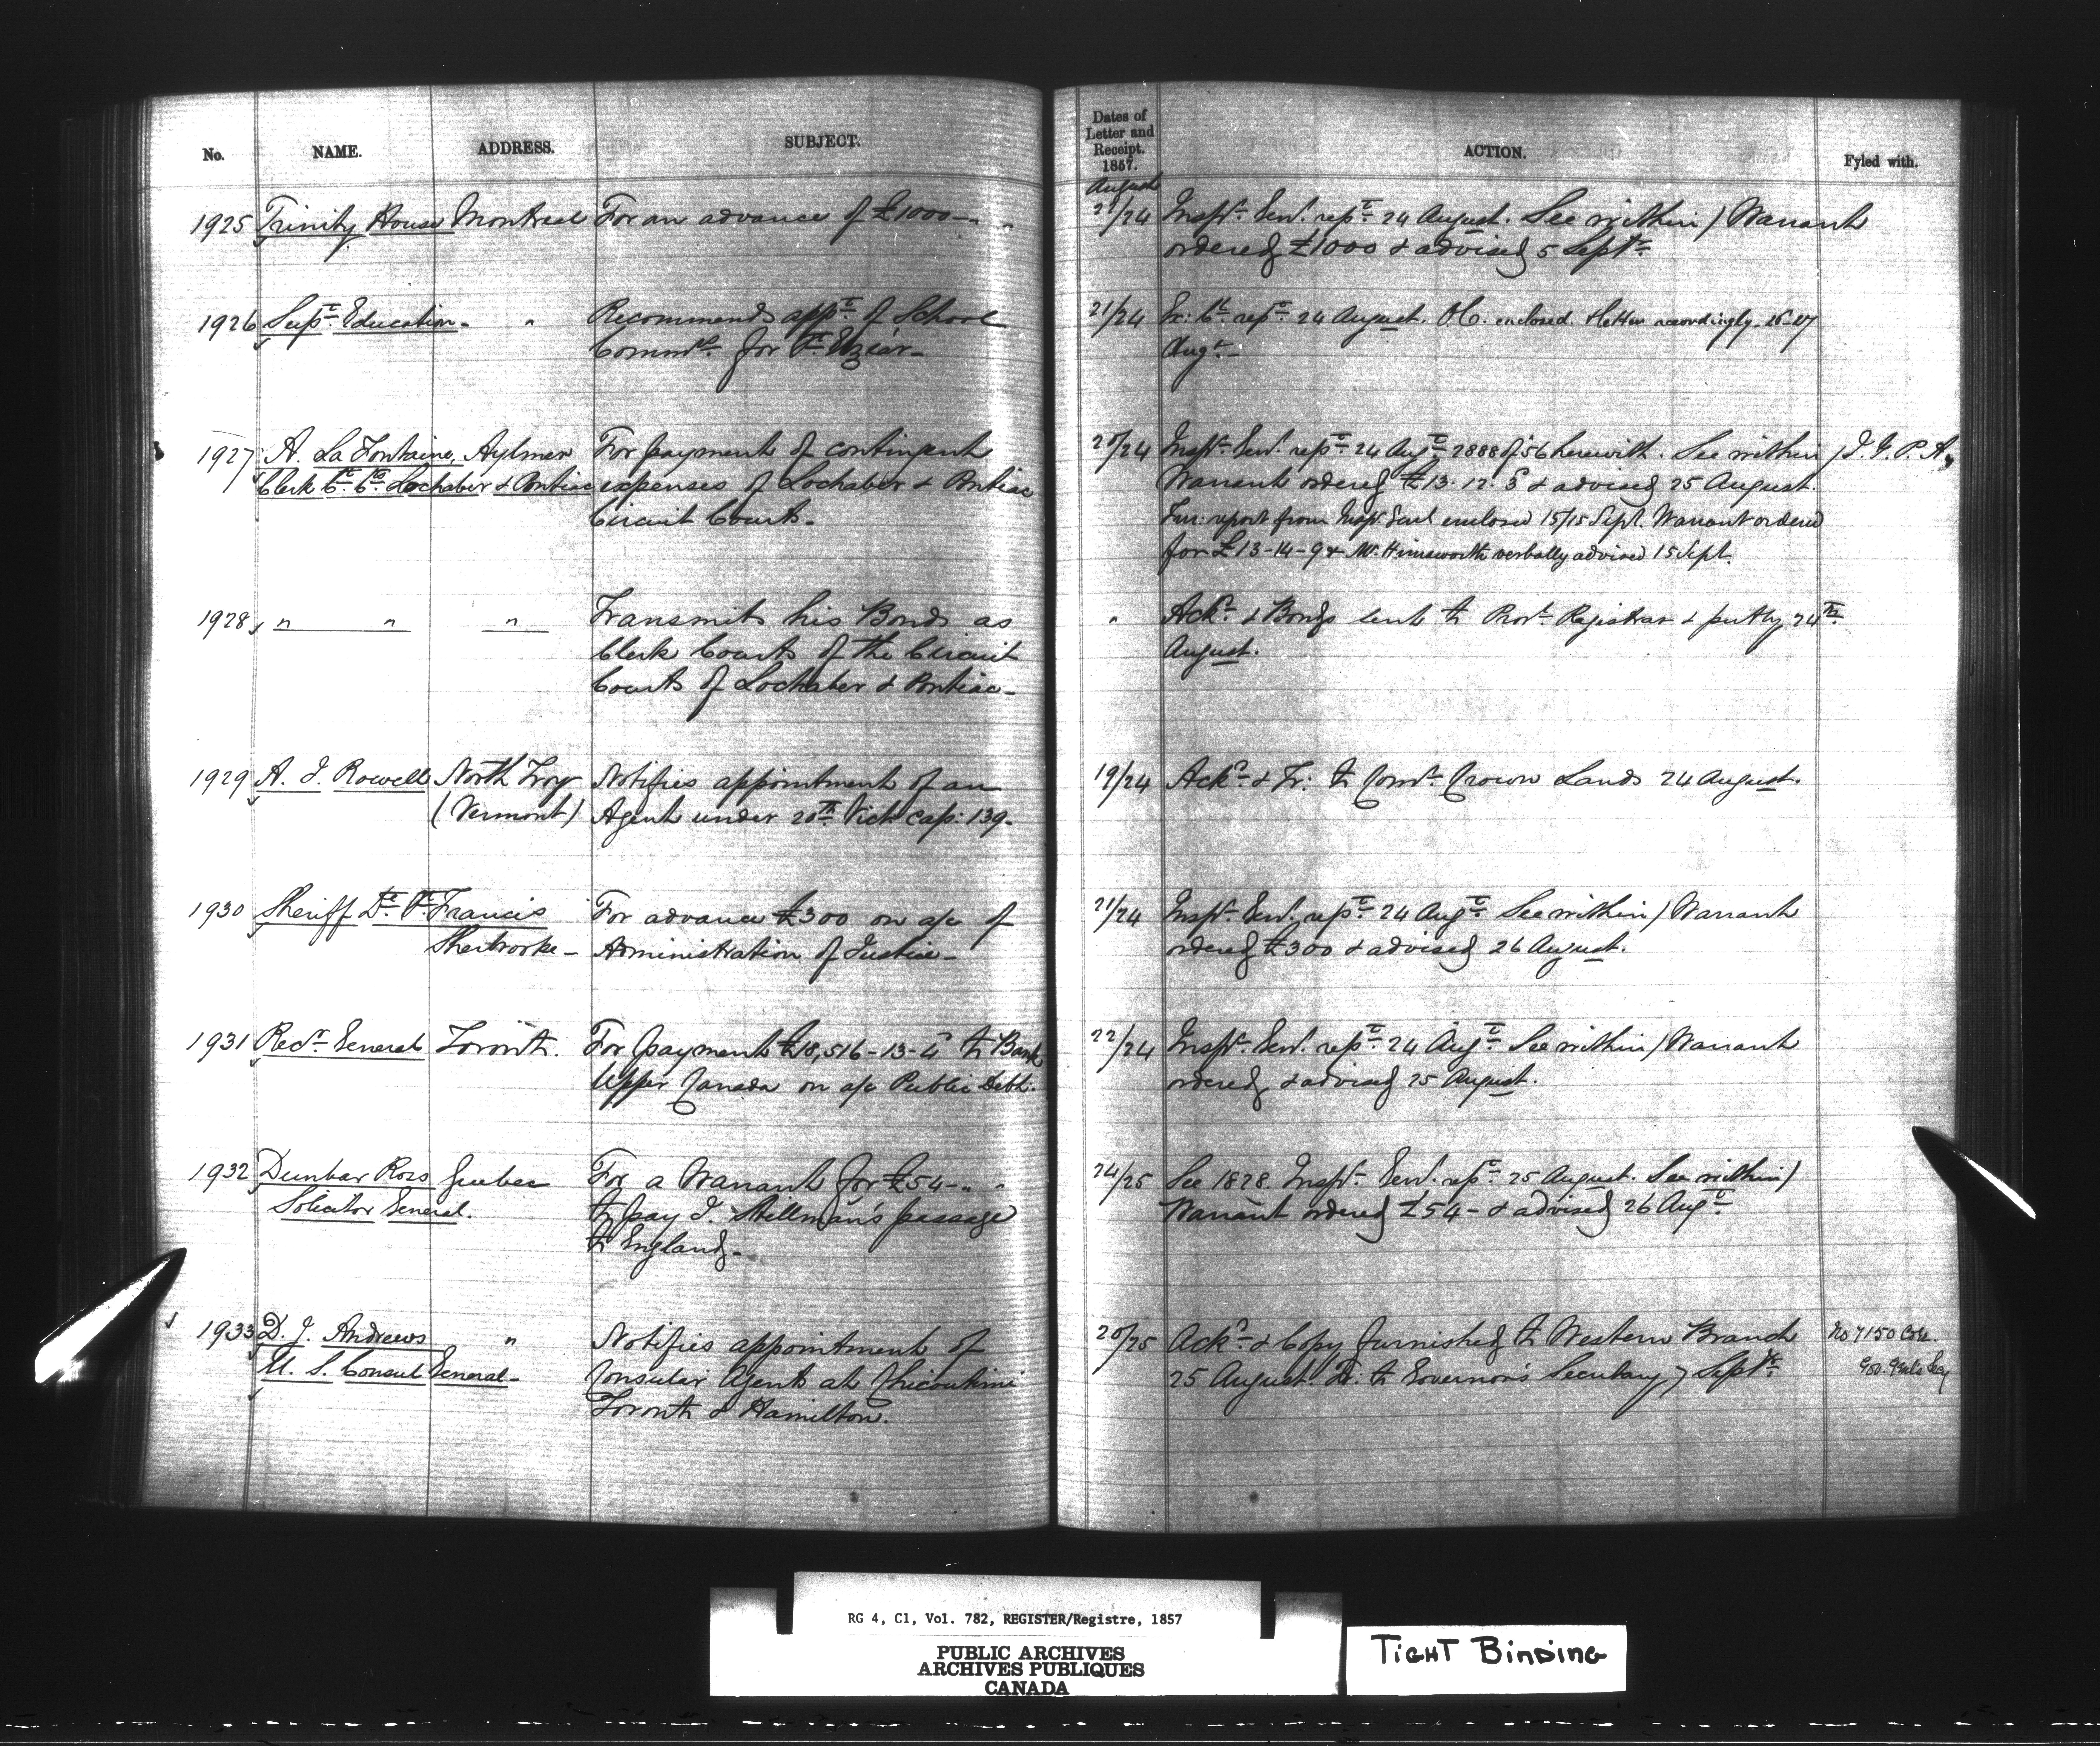 No. NAME. ADDRESS. SUBJECT.
Dates of
Letter and
Receipt.
1857.
ACTION. Fyled with.
August
1925 Trinity House Montreal For an advance of £1000-"-"
21/24 Inspr. Genl. rept. 24 August. See within / Warrant
ordered £1000 & advised 5 Septr.
1926 Supt. Education - " Recommends appt. of School
Commrs. for St.
21/24 Ex: Cl. rept. 24 August. O.C. enclosed. & letter accordingly. 26-27
Augt. -
1927 A. La Fontaine, Aylmer For payment of contingent
Clerk Ct. Ct. Lochaber & Pontiac expenses of Lochaber & Pontiac
Circuit Courts.
20/24 Inspr. Genl. rept. 24 Augt. 2888 of '56 herewith. See within / I. G. P. A.
Warrant ordered £13. 12. 5 & advised 25 August.
Fur: report from Inspr. Genl enclosed 15/15 Sept. Warrant ordered
for £13-14-9 & Mr. Himsworth verbally advised 15 Sept.
1928 " " " Transmits his Bonds as
Clerk Courts of the Circuit
Courts of Lochaber & Pontiac -
" Ackd. & Bonds sent to Provl. Registrar & party 24th
August.
1929 A. J. Rowell North Troy Notifies appointment of an
(Vermont) Agent under 20th. Vict Cap: 139.
19/24 Ackd. & Tr: to Comr. Crown Lands 24 August.
1930 Sheriff Dt. St. Francis For advance £300 on a/c of
Sherbrooke - Administration of Justice -
21/24 Inspr. Genl. rept. 24 Augt. See within / Warrant
ordered £300 & advised 26 August.
1931 Recr. General Toronto. For payment £18,516-13-4 to Bank
Upper Canada on a/c Public Debt.
22/24 Inspr. Genl. rept. 24 Augt. See within / Warrant
ordered & advised 25 August.
1932 Dunbar Ross Quebec For a Warrant for £54-"-"
Solicitor General. to pay J. Hillman's passage
to England -
24/25 See 1828. Inspr. Genl. rept. 25 August. See within /
Warrant ordered £54 - & advised 26 Augt.
1933 D. J. Andrews " Notifies appointment of
U. S. Consul General - Consular Agents at Chicoutimi
Toronto & Hamilton.
20/25 Ackd. & Copy furnished to Western Branch No 7150 Cor.
25 August. Tr: to Governor's Secretary 7 Septr. Gov. Genl's Secy
RG 4, C1, Vol. 782, REGISTER/Registre, 1857
PUBLIC ARCHIVES
ARCHIVES PUBLIQUES
CANADA
TIGHT BINDING